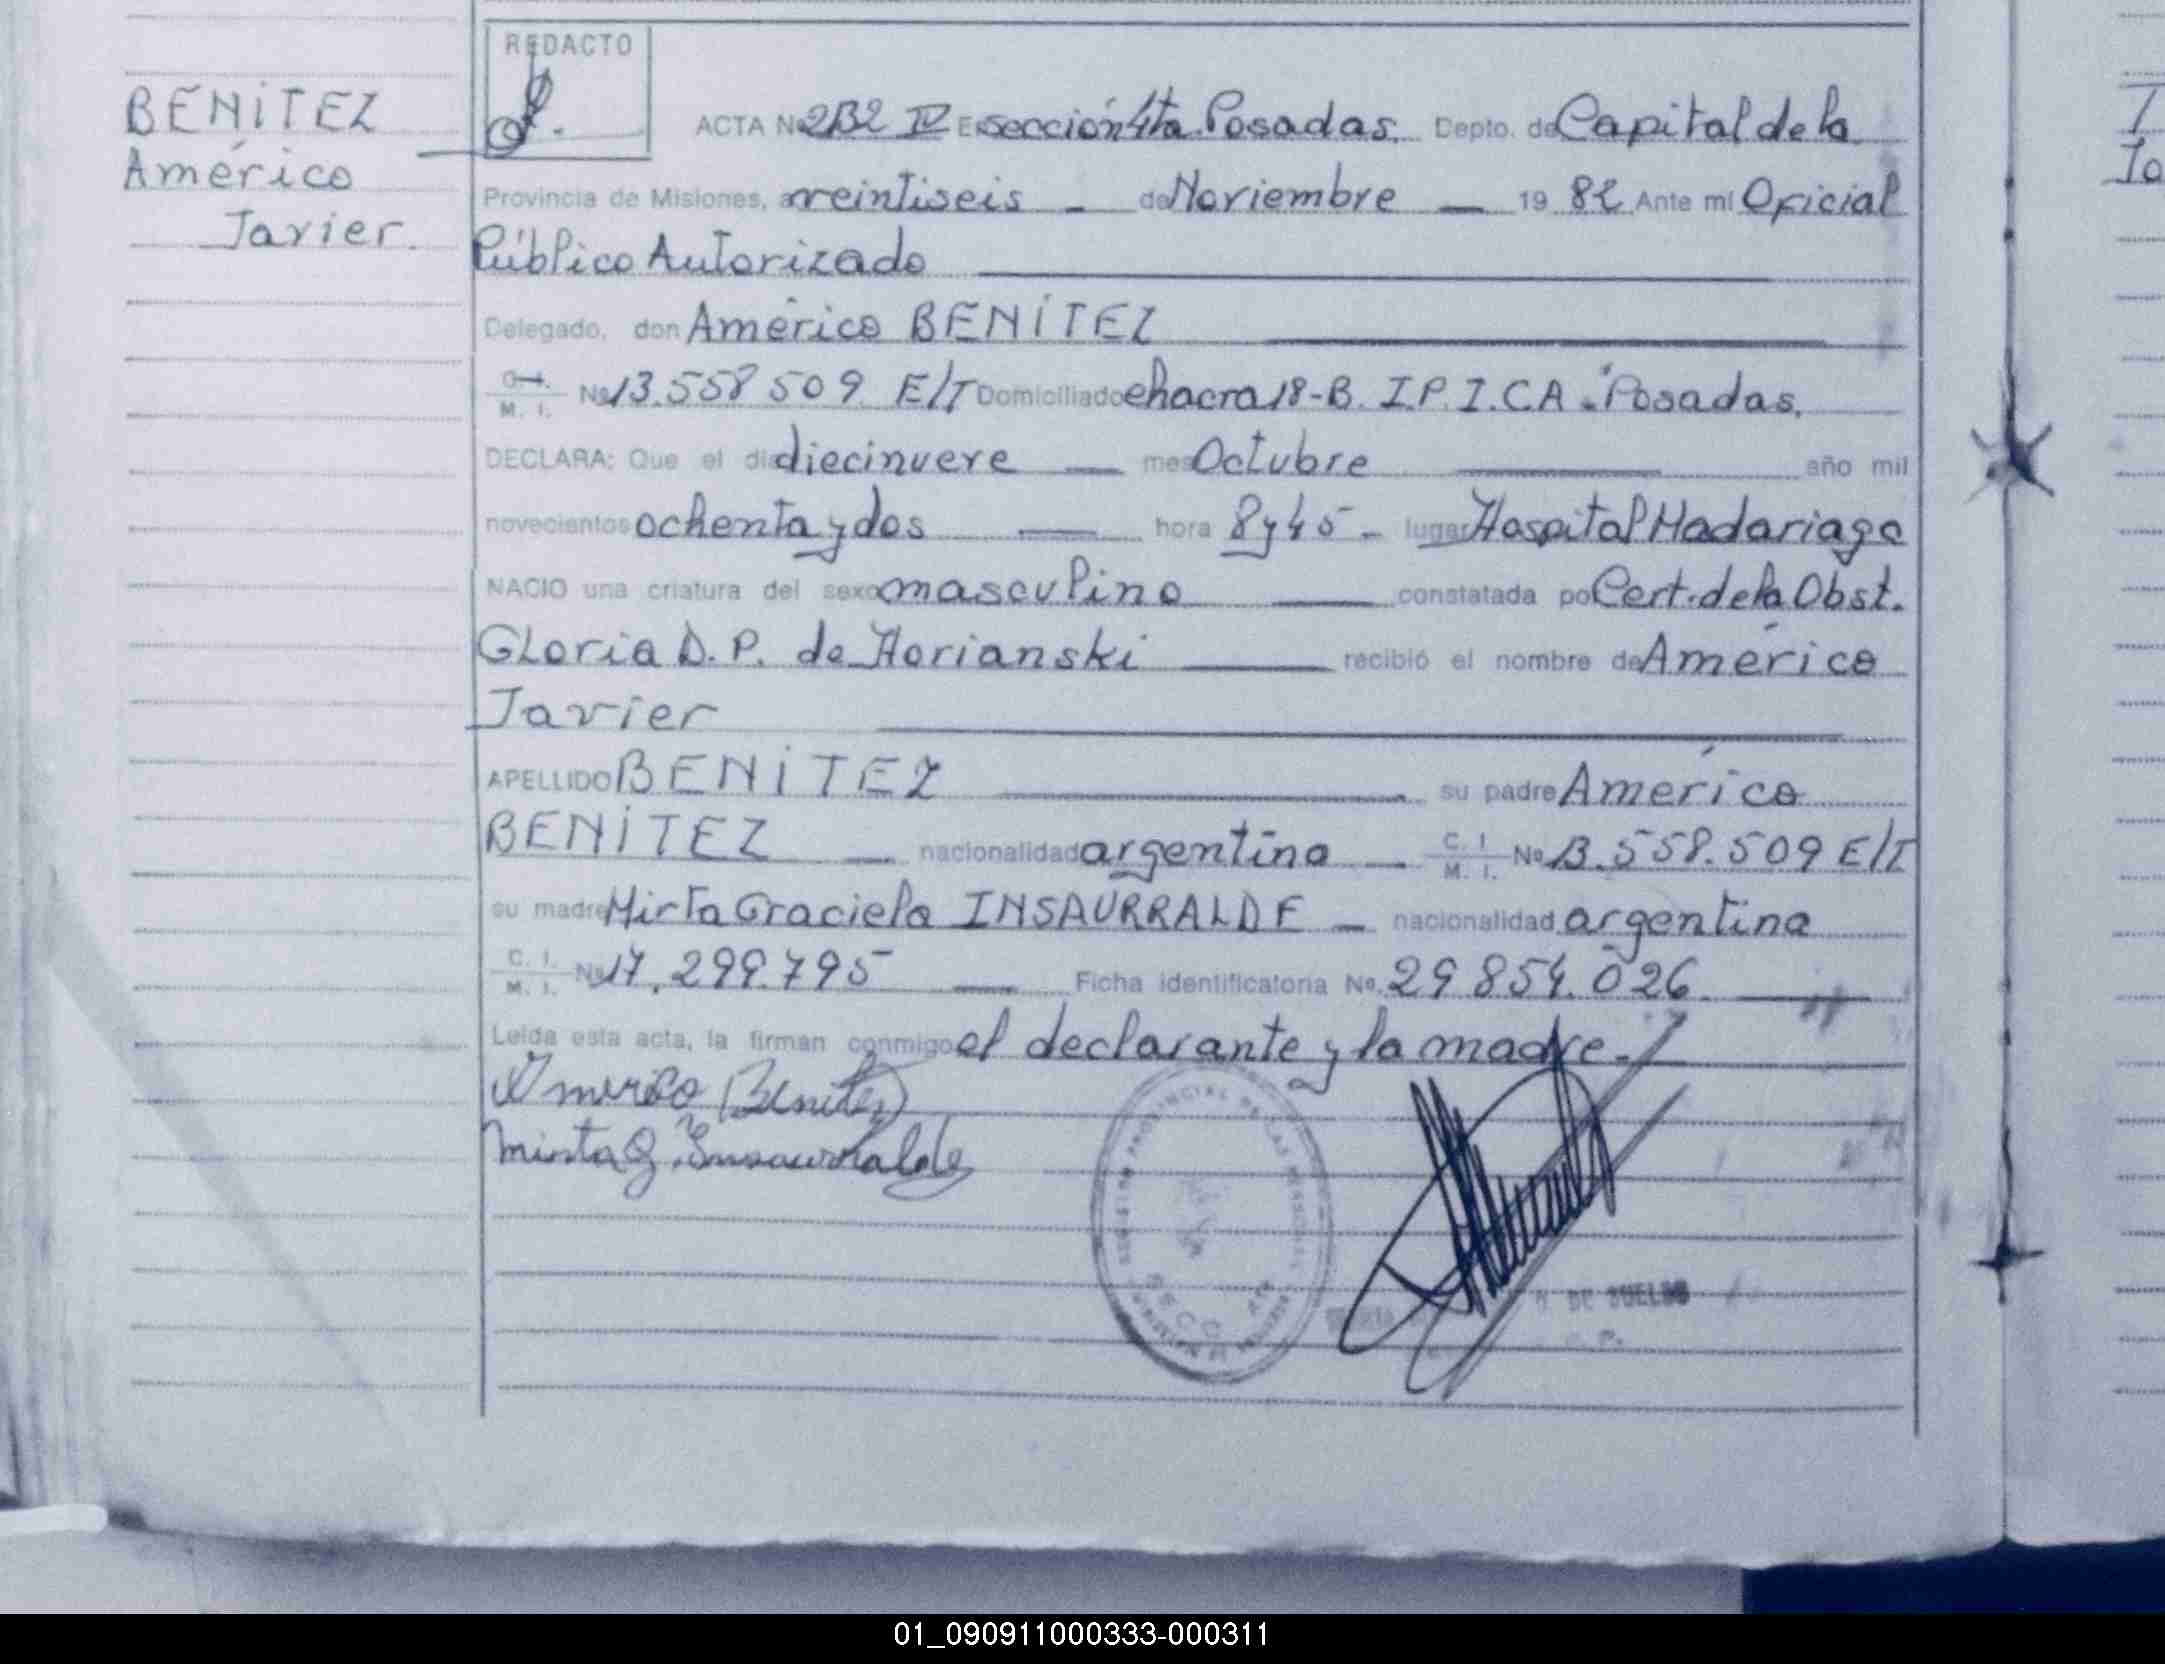 BENÍTEZ
Américo
Javier.
REDACTO
ACTA Nº 2132 IV E sección 4ta. Posadas. Depto. de Capital de la
Provincia de Misiones, a veintiseis - de Noviembre — 19 82 Ante mi Oficial
Público Autorizado
Delegado, don Américo BENÍTEZ
C. I. M. I. Nº 13.558 509 E/T Domiciliado chacra 18-B. I.P.I.C.A. Posadas.
DECLARA: Que el día diecinueve — mes Octubre — año mil
novecientos ochenta y dos — hora 8 y 45 - lugar Hospital Madariaga
NACIO una criatura del sexo masculino — constatada por Cert. de la Obst.
Gloria D. P. de Horianski — recibió el nombre de Américo
Javier
APELLIDO BENÍTEZ — su padre Américo
BENÍTEZ — nacionalidad argentina — C. I. M. I. Nº 13.558.509 E/T
su madre Mirta Graciela INSAURRALDE — nacionalidad argentina
C. I. M. I. Nº 17.299.795 — Ficha identificatoria Nº 29 854.026.
Leída esta acta, la firman conmigo el declarante y la madre.
Americo Benitez
Mirta G. Insaurralde
PROVINCIAL DE LAS PERSONAS
SECC
DE SUELDO
01_090911000333-000311